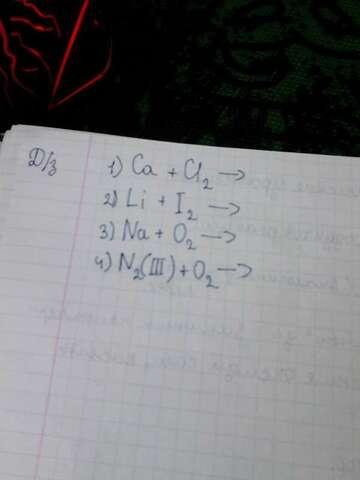 Д/з
1) Ca + Cl₂ →
2) Li + I₂ →
3) Na + O₂ →
4) N₂(III) + O₂ →